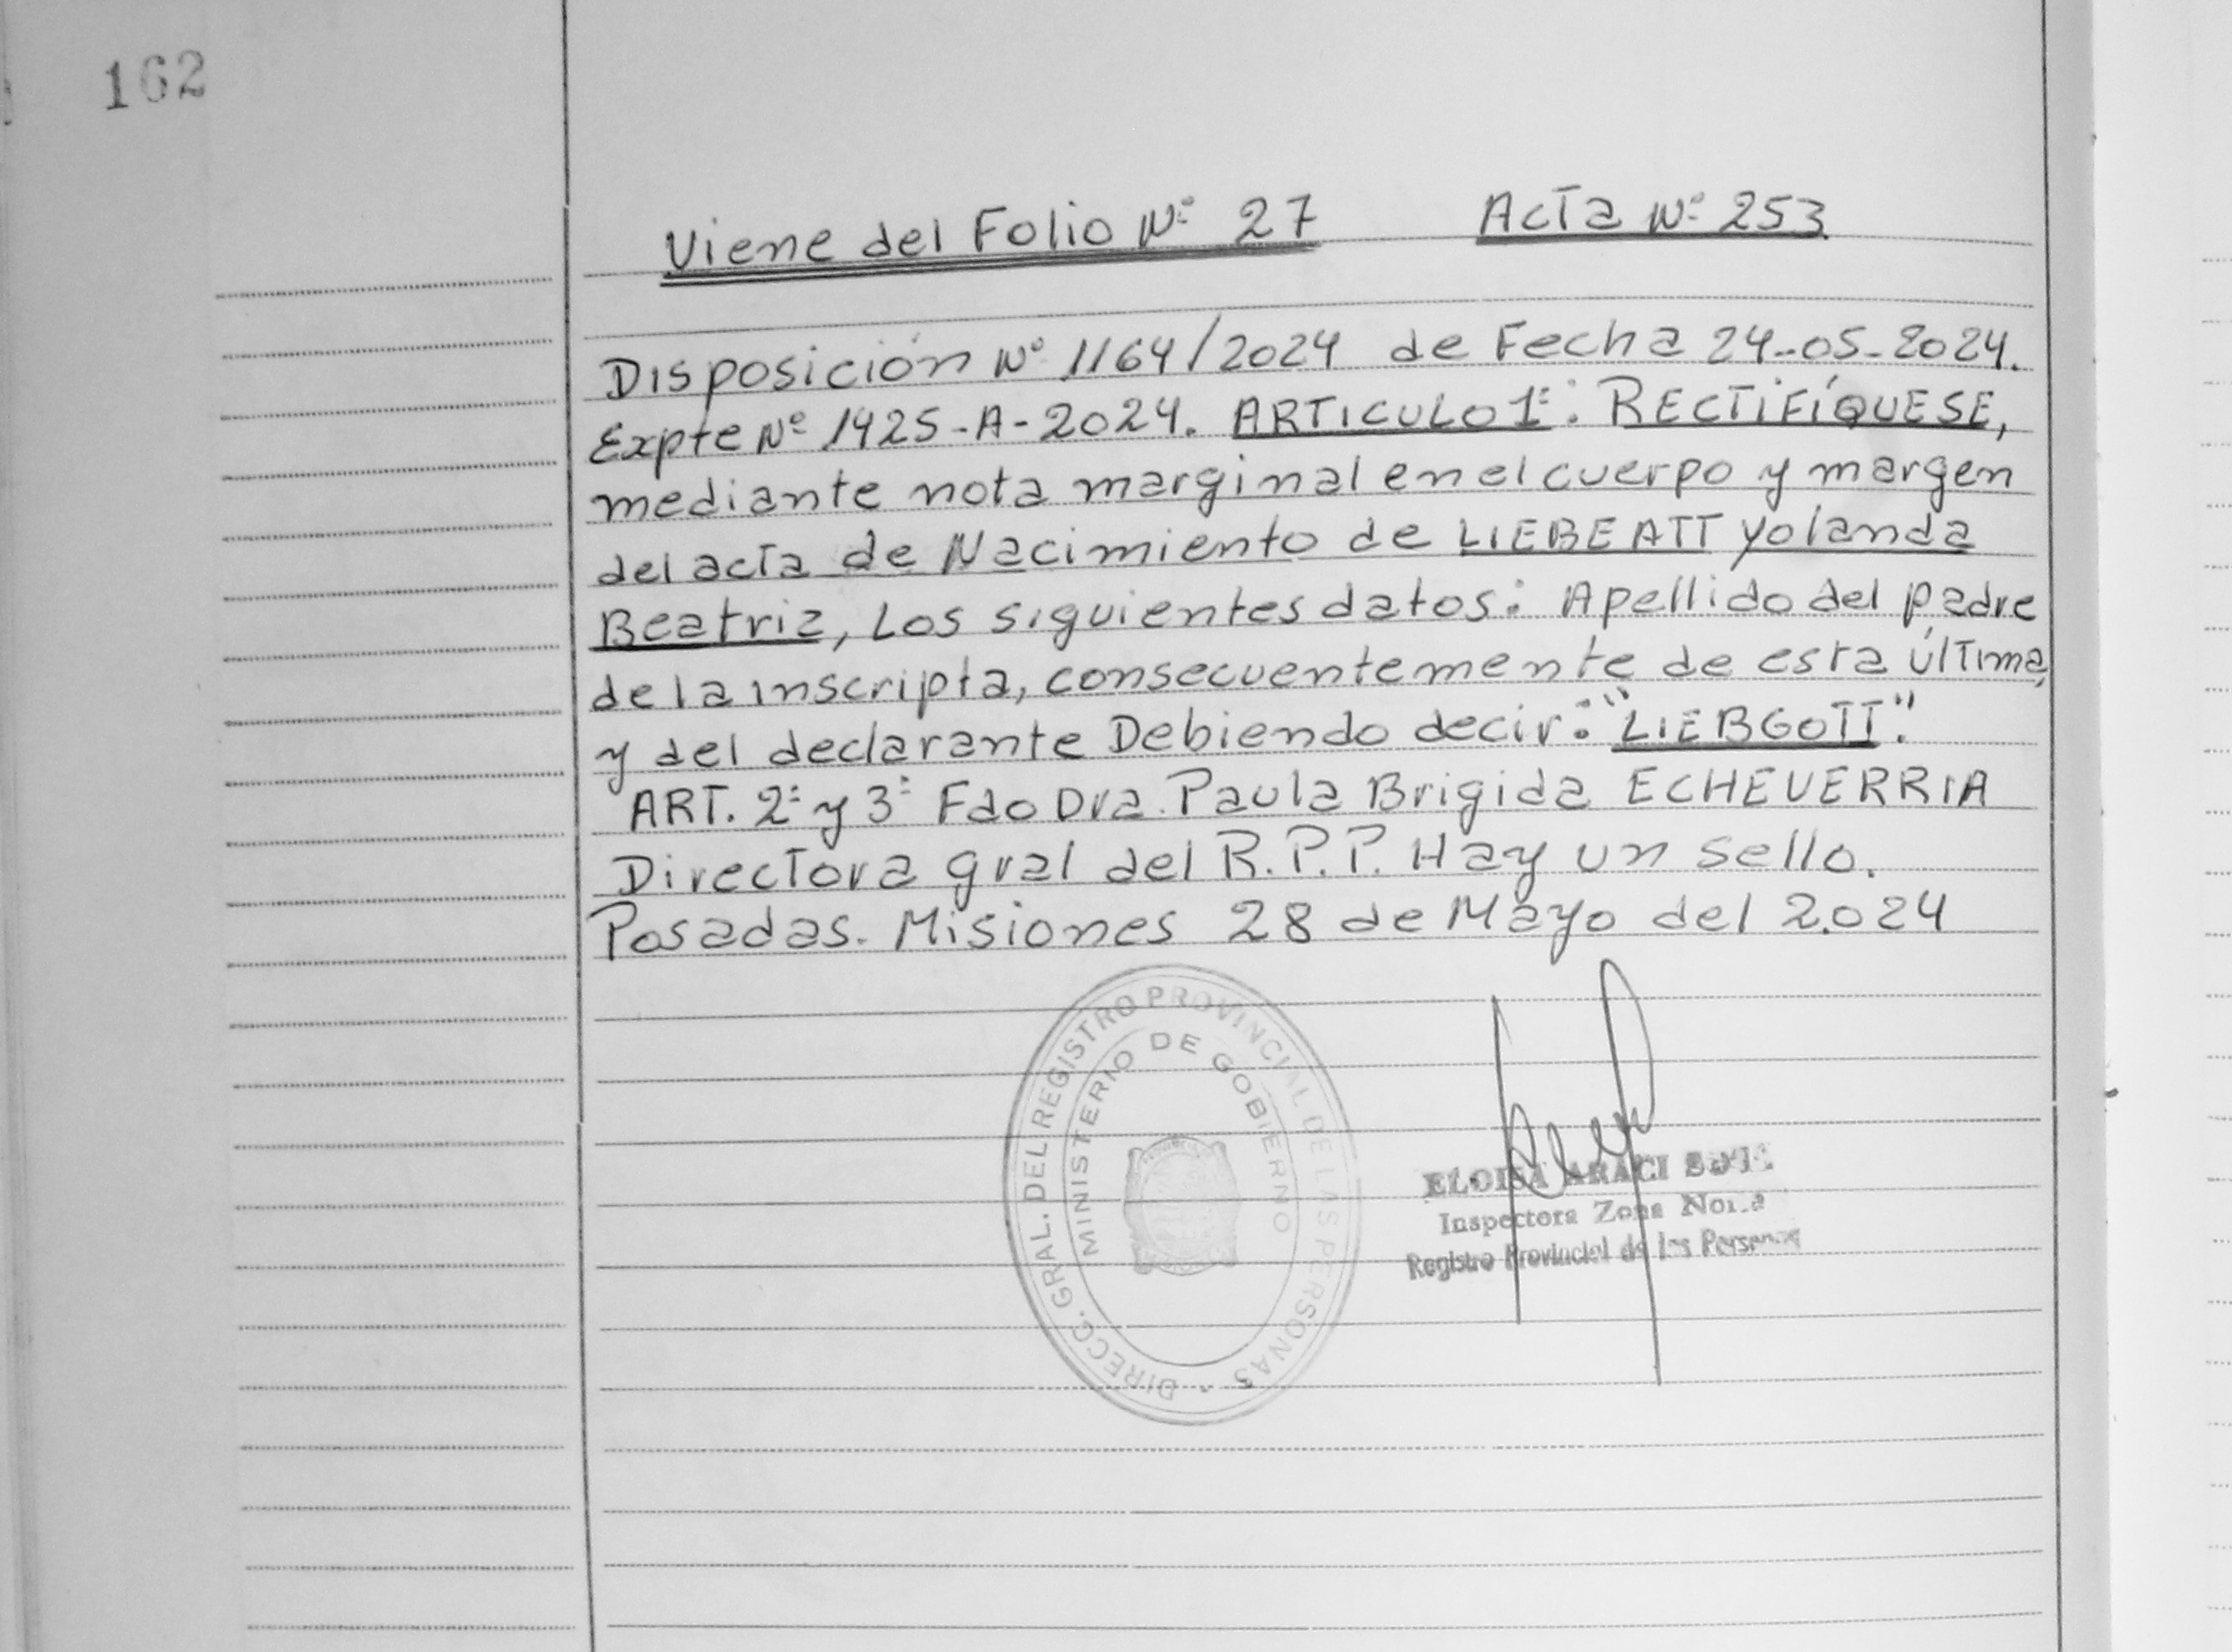 162
Viene del Folio Nº 27 Acta Nº 253
Disposición Nº 1164/2024 de Fecha 24-05-2024.
Expte Nº 1425-A-2024. ARTICULO 1º: RECTIFÍQUESE,
mediante nota marginal en el cuerpo y margen
del acta de Nacimiento de LIEBEATT Yolanda
Beatriz, Los siguientes datos: Apellido del padre
de la inscripta, consecuentemente de esta última,
y del declarante Debiendo decir: "LIEBGOTT".
ART. 2º y 3º Fdo Dra. Paula Brigida ECHEVERRIA
Directora gral del R.P.P. Hay un sello.
Posadas. Misiones 28 de Mayo del 2.024
DIRECC. GRAL. DEL REGISTRO PROVINCIAL DE LAS PERSONAS
MINISTERIO DE GOBIERNO
ELOISA ARACI
Inspectora Zona
Registro Provincial de las Personas